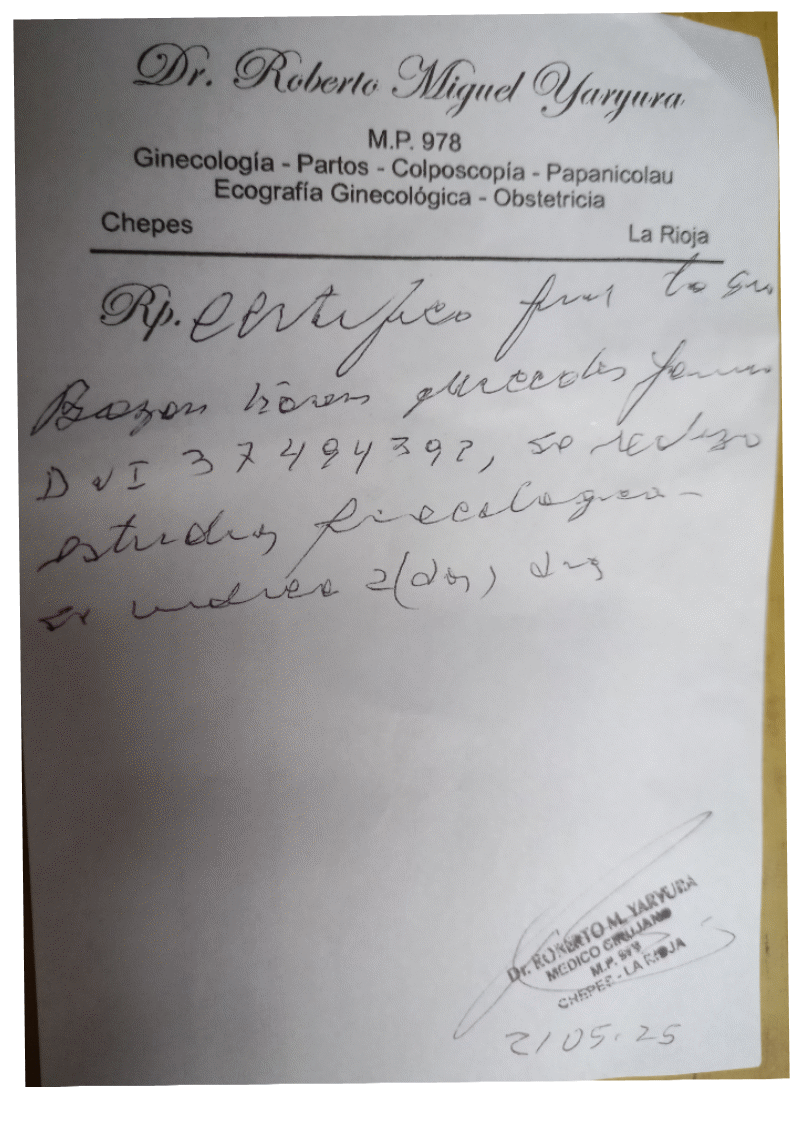 Dr. Roberto Miguel Yaryura
M.P. 978
Ginecología - Partos - Colposcopía - Papanicolau
Ecografía Ginecológica - Obstetricia
Chepes La Rioja
Rp. Certifico que la Sra
Bazan Mercedes
DNI 37494392, se realizo
estudios ginecologico -
se indica 2 (dos) dias
Dr. ROBERTO M. YARYURA
MEDICO CIRUJANO
M.P. 978
CHEPES - LA RIOJA
21 05. 25